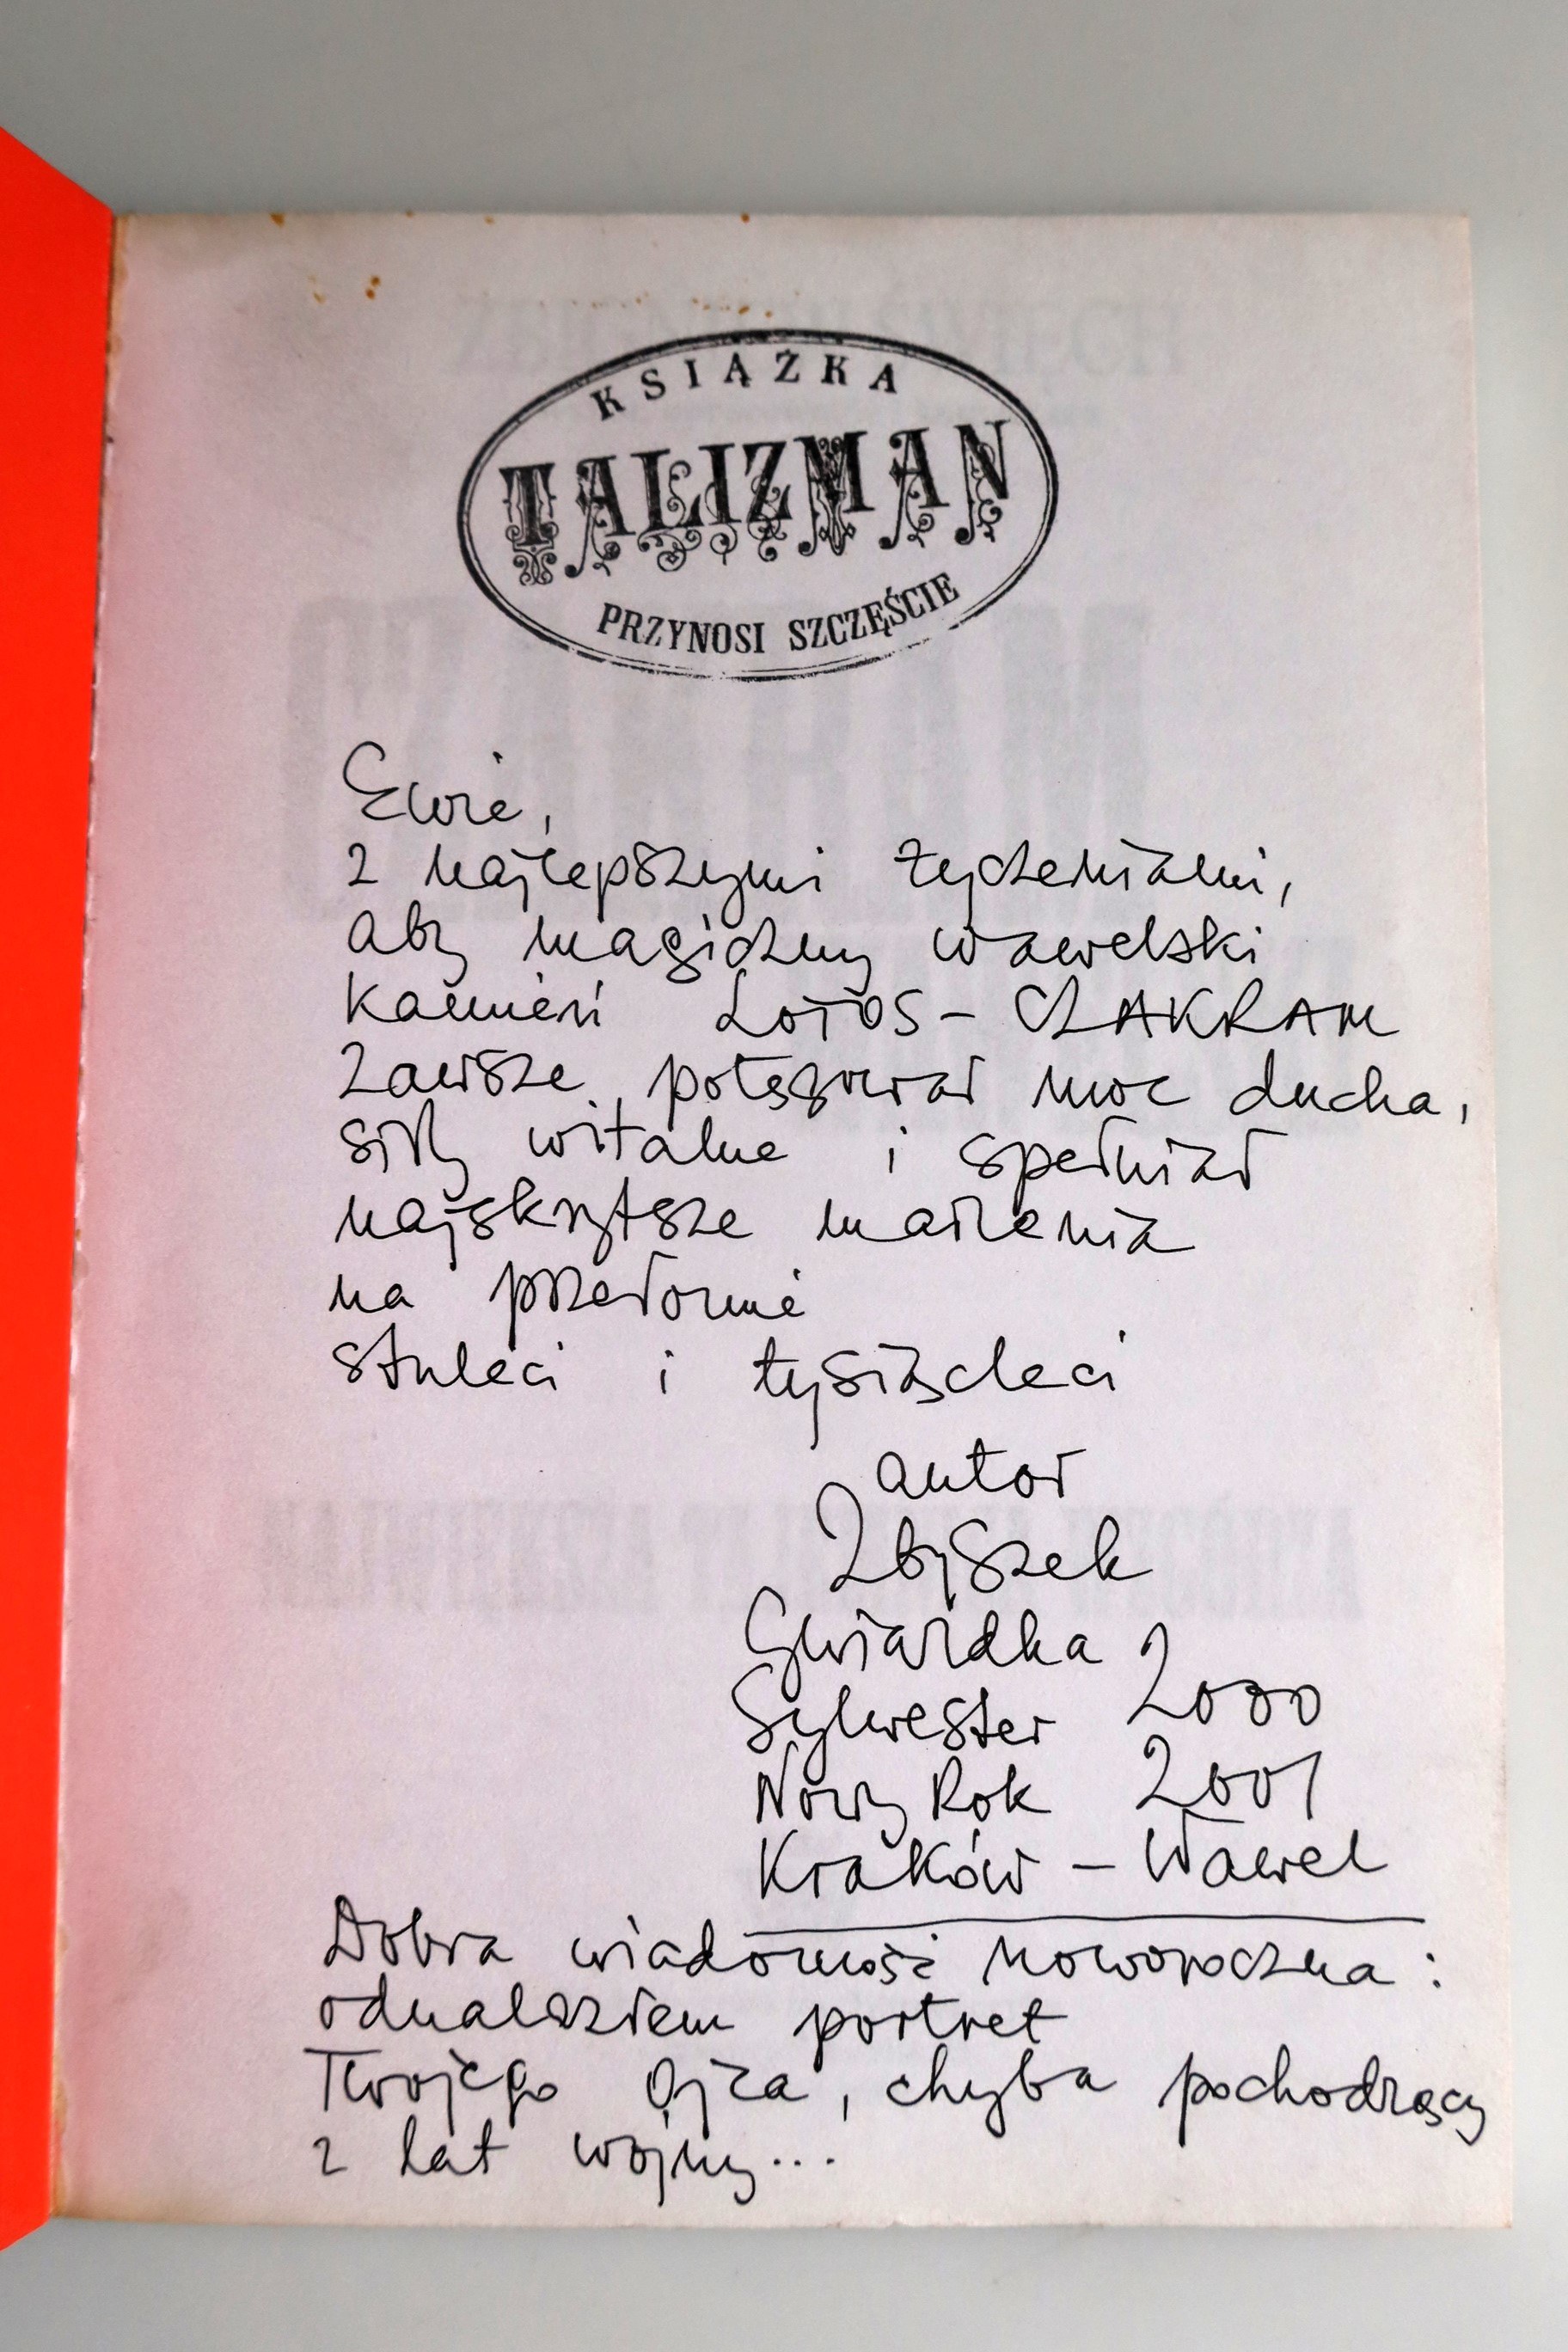 KSIĄŻKA
TALIZMAN
PRZYNOSI SZCZĘŚCIE
Ewie,
z najlepszymi życzeniami,
aby magiczny wawelski
kamień LOTOS – CZAKRAM
zawsze potęgował moc ducha,
siły witalne i spełniał
najskrytsze marzenia
na przełomie
stuleci i tysiącleci
autor
Zbyszek
Gwiazdka
Sylwester 2000
Nowy Rok 2001
Kraków – Wawel
Dobra wiadomość noworoczna :
odnalazłem portret
Twojego Ojca, chyba pochodzący
z lat wojny...